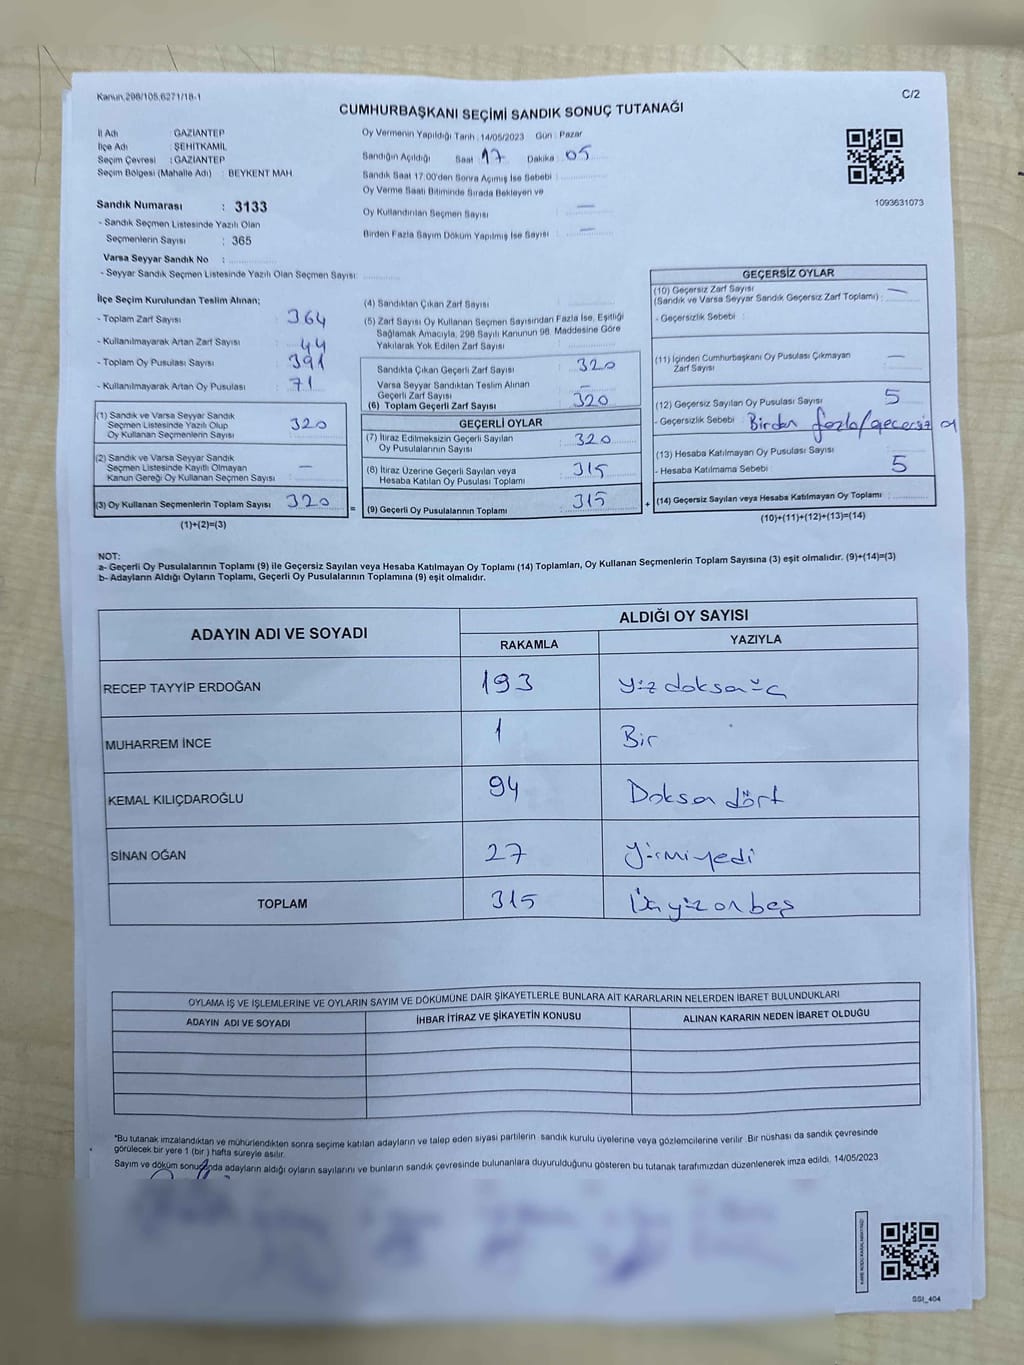 Kanun.298/105,6271/18-1
C/2
CUMHURBAŞKANI SEÇİMİ SANDIK SONUÇ TUTANAĞI
İl Adı : GAZİANTEP
İlçe Adı : ŞEHİTKAMİL
Seçim Çevresi : GAZİANTEP
Seçim Bölgesi (Mahalle Adı) : BEYKENT MAH.
Sandık Numarası : 3133
- Sandık Seçmen Listesinde Yazılı Olan
Seçmenlerin Sayısı : 365
Varsa Seyyar Sandık No :
- Seyyar Sandık Seçmen Listesinde Yazılı Olan Seçmen Sayısı:
Oy Vermenin Yapıldığı Tarih : 14/05/2023 Gün : Pazar
Sandığın Açıldığı Saat 17 Dakika : 05
Sandık Saat 17:00'den Sonra Açmış İse Sebebi :
Oy Verme Saati Bitiminde Sırada Bekleyen ve
Oy Kullandırılan Seçmen Sayısı : —
Birden Fazla Sayım Döküm Yapılmış İse Sayısı : —
1093631073
İlçe Seçim Kurulundan Teslim Alınan;
- Toplam Zarf Sayısı : 364
- Kullanılmayarak Artan Zarf Sayısı : 44
- Toplam Oy Pusulası Sayısı : 391
- Kullanılmayarak Artan Oy Pusulası : 71
(1) Sandık ve Varsa Seyyar Sandık
Seçmen Listesinde Yazılı Olup
Oy Kullanan Seçmenlerin Sayısı 320
(2) Sandık ve Varsa Seyyar Sandık
Seçmen Listesinde Kayıtlı Olmayan
Kanun Gereği Oy Kullanan Seçmen Sayısı : —
(3) Oy Kullanan Seçmenlerin Toplam Sayısı 320 =
(1)+(2)=(3)
(4) Sandıktan Çıkan Zarf Sayısı :
(5) Zarf Sayısı Oy Kullanan Seçmen Sayısından Fazla İse, Eşitliği
Sağlamak Amacıyla, 298 Sayılı Kanunun 98. Maddesine Göre
Yakılarak Yok Edilen Zarf Sayısı :
Sandıkta Çıkan Geçerli Zarf Sayısı : 320
Varsa Seyyar Sandıktan Teslim Alınan
Geçerli Zarf Sayısı : —
(6) Toplam Geçerli Zarf Sayısı : 320
GEÇERLİ OYLAR
(7) İtiraz Edilmeksizin Geçerli Sayılan
Oy Pusulasının Sayısı : 320
(8) İtiraz Üzerine Geçerli Sayılan veya
Hesaba Katılan Oy Pusulası Toplamı : 315
(9) Geçerli Oy Pusulalarının Toplamı : 315 +
GEÇERSİZ OYLAR
(10) Geçersiz Zarf Sayısı
(Sandık ve Varsa Seyyar Sandık Geçersiz Zarf Toplamı) : —
- Geçersizlik Sebebi :
(11) İçinden Cumhurbaşkanı Oy Pusulası Çıkmayan
Zarf Sayısı : —
(12) Geçersiz Sayılan Oy Pusulası Sayısı : 5
- Geçersizlik Sebebi : Birden fazla/geçersiz oy
(13) Hesaba Katılmayan Oy Pusulası Sayısı :
- Hesaba Katılmama Sebebi : 5
(14) Geçersiz Sayılan veya Hesaba Katılmayan Oy Toplamı :
(10)+(11)+(12)+(13)=(14)
NOT:
a- Geçerli Oy Pusulalarının Toplamı (9) ile Geçersiz Sayılan veya Hesaba Katılmayan Oy Toplamı (14) Toplamları, Oy Kullanan Seçmenlerin Toplam Sayısına (3) eşit olmalıdır. (9)+(14)=(3)
b- Adayların Aldığı Oyların Toplamı, Geçerli Oy Pusulalarının Toplamına (9) eşit olmalıdır.
ADAYIN ADI VE SOYADI ALDIĞI OY SAYISI
RAKAMLA YAZIYLA
RECEP TAYYİP ERDOĞAN 193 yüzdoksanüç
MUHARREM İNCE 1 Bir
KEMAL KILIÇDAROĞLU 94 Doksandört
SİNAN OĞAN 27 yirmiyedi
TOPLAM 315 Üçyüzonbeş
OYLAMA İŞ VE İŞLEMLERİNE VE OYLARIN SAYIM VE DÖKÜMÜNE DAİR ŞİKAYETLERLE BUNLARA AİT KARARLARIN NELERDEN İBARET BULUNDUKLARI
ADAYIN ADI VE SOYADI İHBAR İTİRAZ VE ŞİKAYETİN KONUSU ALINAN KARARIN NEDEN İBARET OLDUĞU
*Bu tutanak imzalandıktan ve mühürlendikten sonra seçime katılan adayların ve talep eden siyasi partilerin sandık kurulu üyelerine veya gözlemcilerine verilir. Bir nüshası da sandık çevresinde
görülecek bir yere 1 (bir) hafta süreyle asılır.
Sayım ve döküm sonucunda adayların aldığı oyların sayılarını ve bunların sandık çevresinde bulunanlara duyurulduğunu gösteren bu tutanak tarafımızdan düzenlenerek imza edildi. 14/05/2023
SSI_404